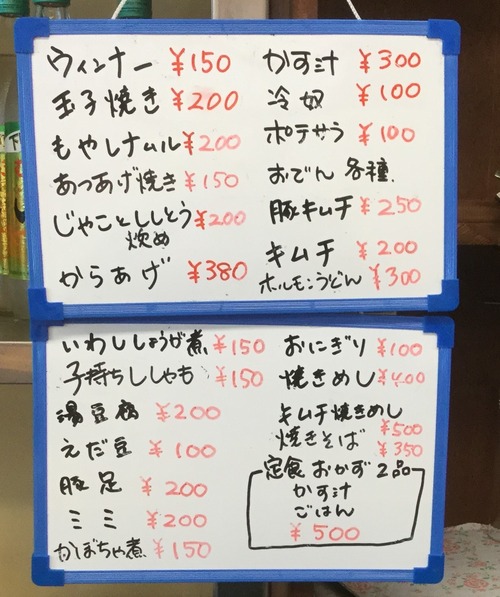 ウィンナー ¥150
玉子焼き ¥200
もやしナムル ¥200
あつあげ焼き ¥150
じゃことししとう ¥200
炒め
からあげ ¥380
かす汁 ¥300
冷奴 ¥100
ポテサラ ¥100
おでん 各種.
豚キムチ ¥250
キムチ ¥200
ホルモンうどん ¥300
いわししょうが煮 ¥150
子持ちししゃも ¥150
湯豆腐 ¥200
えだ豆 ¥100
豚足 ¥200
ミミ ¥200
かぼちゃ煮 ¥150
おにぎり ¥100
焼きめし ¥400
キムチ焼きめし
¥500
焼きそば ¥350
定食 おかず 2品
かす汁
ごはん
¥500